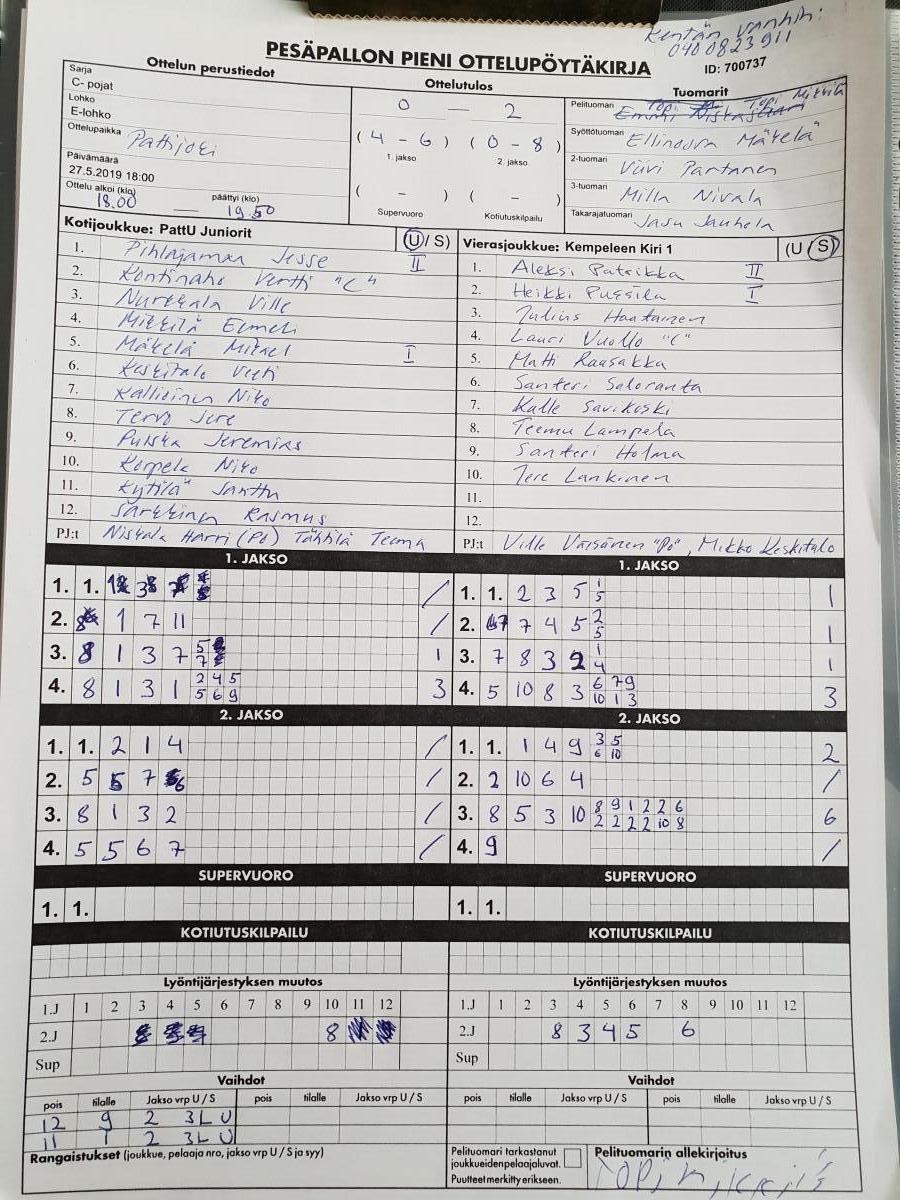 Kentän vanhin:
040 0823911
PESÄPALLON PIENI OTTELUPÖYTÄKIRJA
ID: 700737
Ottelun perustiedot
Sarja
C- pojat
Lohko
E-lohko
Ottelupaikka Pattijoki
Päivämäärä
27.5.2019 18:00
Ottelu alkoi (klo) päättyi (klo)
18.00 — 19.50
Ottelutulos
0 — 2
(4 - 6) (0 - 8)
1. jakso 2. jakso
( - ) ( - )
Supervuoro Kotiutuskilpailu
Tuomarit
Pelituomari Topi Mikkilä
Syöttötuomari Ellinoora Mäkelä
2-tuomari Viivi Pantanen
3-tuomari Milla Nivala
Takarajatuomari Jasu Jauhola
Kotijoukkue: PattU Juniorit (U/ S)
1. Pihlajamaa Jesse II
2. Kontinaho Vertti "C"
3. Nurkkala Ville
4. Mikkilä Eemeli
5. Mäkelä Mikael I
6. Keskitalo Veeti
7. Kallioinen Niko
8. Tervo Jere
9. Puiska Jeremias
10. Korpela Niko
11. Kytilä Santtu
12. Särkkinen Rasmus
PJ:t Niskala Harri (PE) Tähtilä Teema
Vierasjoukkue: Kempeleen Kiri 1 (U / S)
1. Aleksi Pateikka II
2. Heikki Pussila I
3. Julius Haatainen
4. Lauri Vuollo "C"
5. Matti Raasakka
6. Santeri Saloranta
7. Kalle Savikoski
8. Teemu Lampela
9. Santeri Holma
10. Jere Lankinen
11.
12.
PJ:t Ville Väisänen "Pö", Mikko Keskitalo
1. JAKSO
1. 1. 3 /
2. 1 7 11 /
3. 8 1 3 7 5 7 1
4. 8 1 3 1 2 4 5 3
5 6 9
1. JAKSO
1. 1. 2 3 5 1 1
5
2. 7 4 5 2 1
5
3. 7 8 3 2 1 1
4
4. 5 10 8 3 6 7 9 3
10 1 3
2. JAKSO
1. 1. 2 1 4 /
2. 5 5 7 6 /
3. 8 1 3 2 /
4. 5 5 6 7 /
2. JAKSO
1. 1. 1 4 9 3 5 2
6 10
2. 2 10 6 4 /
3. 8 5 3 10 8 9 1 2 2 6 6
2 2 2 2 10 8
4. 9 /
SUPERVUORO
1. 1.
SUPERVUORO
1. 1.
KOTIUTUSKILPAILU
KOTIUTUSKILPAILU
Lyöntijärjestyksen muutos
1.J 1 2 3 4 5 6 7 8 9 10 11 12
2.J 8
Sup
Lyöntijärjestyksen muutos
1.J 1 2 3 4 5 6 7 8 9 10 11 12
2.J 8 3 4 5 6
Sup
Vaihdot
pois tilalle Jakso vrp U / S pois tilalle Jakso vrp U / S
12 9 2 3L U
11 1 2 3L U
Vaihdot
pois tilalle Jakso vrp U / S pois tilalle Jakso vrp U / S
Rangaistukset (joukkue, pelaaja nro, jakso vrp U / S ja syy)
Pelituomari tarkastanut
joukkueidenpelaajaluvat.
Puutteet merkitty erikseen.
Pelituomarin allekirjoitus
Topi Mikkilä